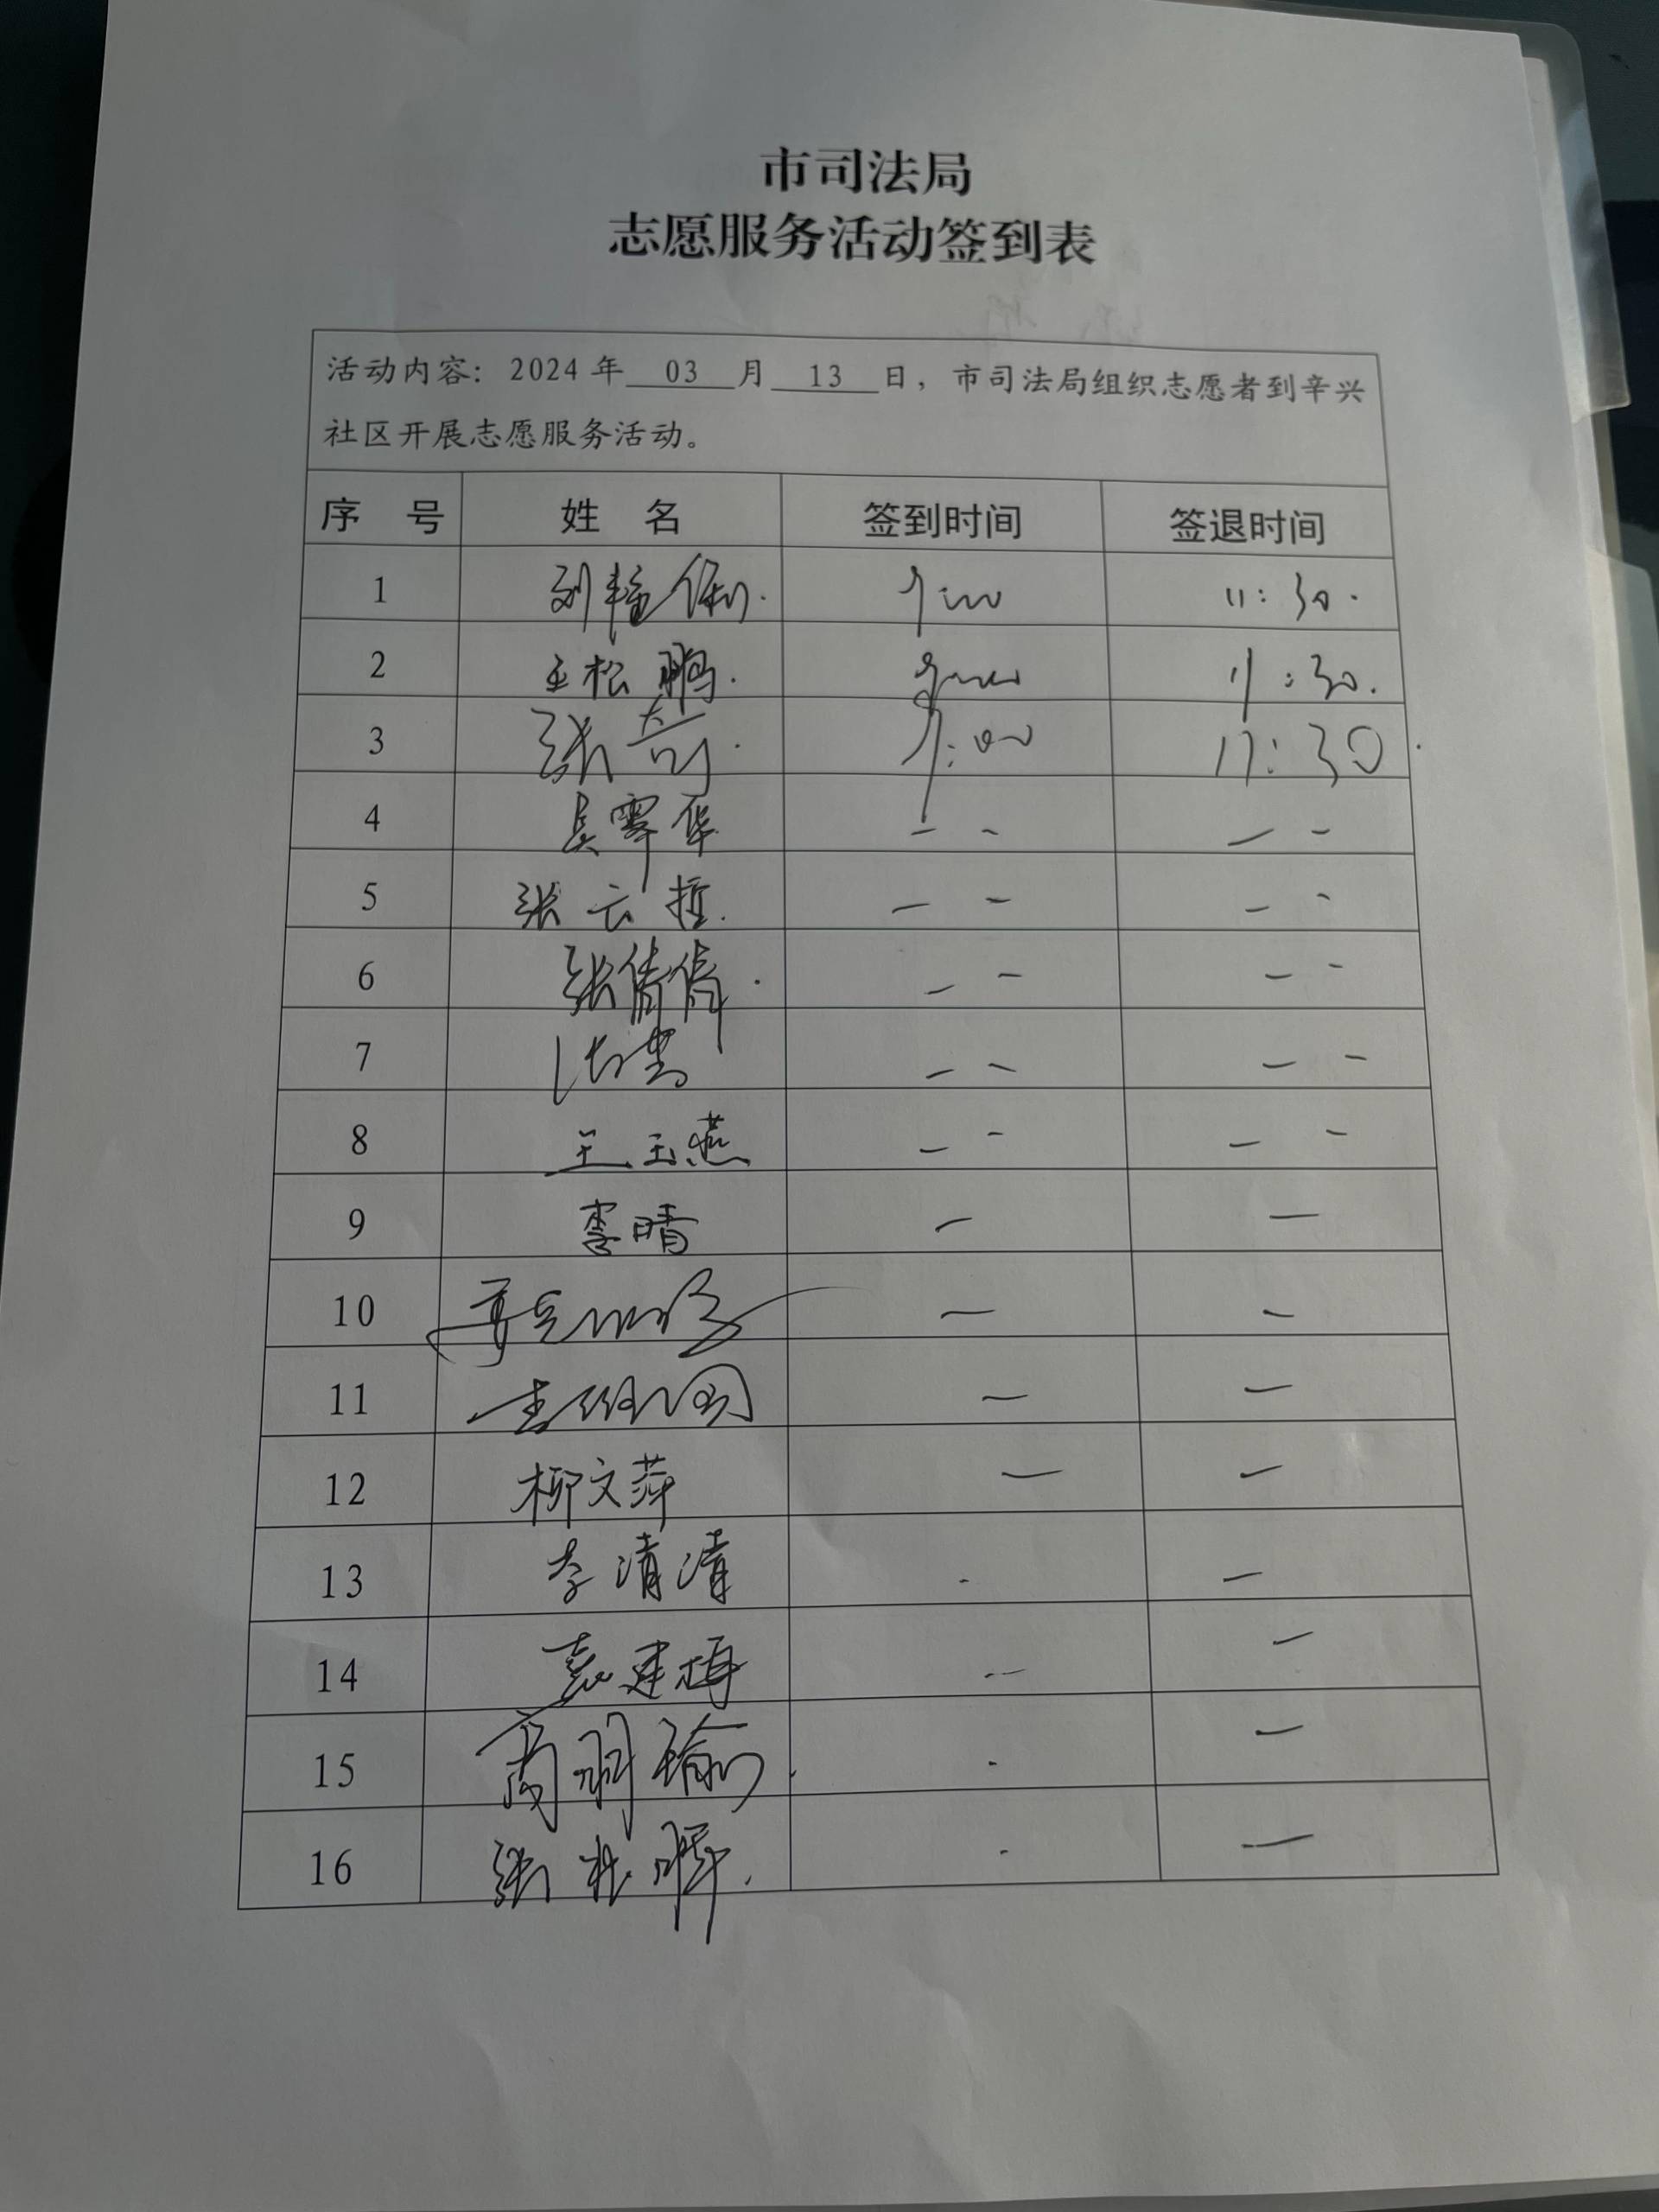 市司法局
志愿服务活动签到表
活动内容：2024 年 03 月 13 日，市司法局组织志愿者到辛兴
社区开展志愿服务活动。
序 号 姓 名 签到时间 签退时间
1 11:30.
2 王松鹏. 11:30.
3 张 9:00 11:30
4 华 — — — —
5 张云哲. — — — —
6 张倩倩. — — — —
7 — — — —
8 王玉燕 — — — —
9 李晴 — —
10 — —
11 — —
12 柳文萍 — —
13 李清清 - —
14 袁建梅 -- —
15 -
16 张 - —